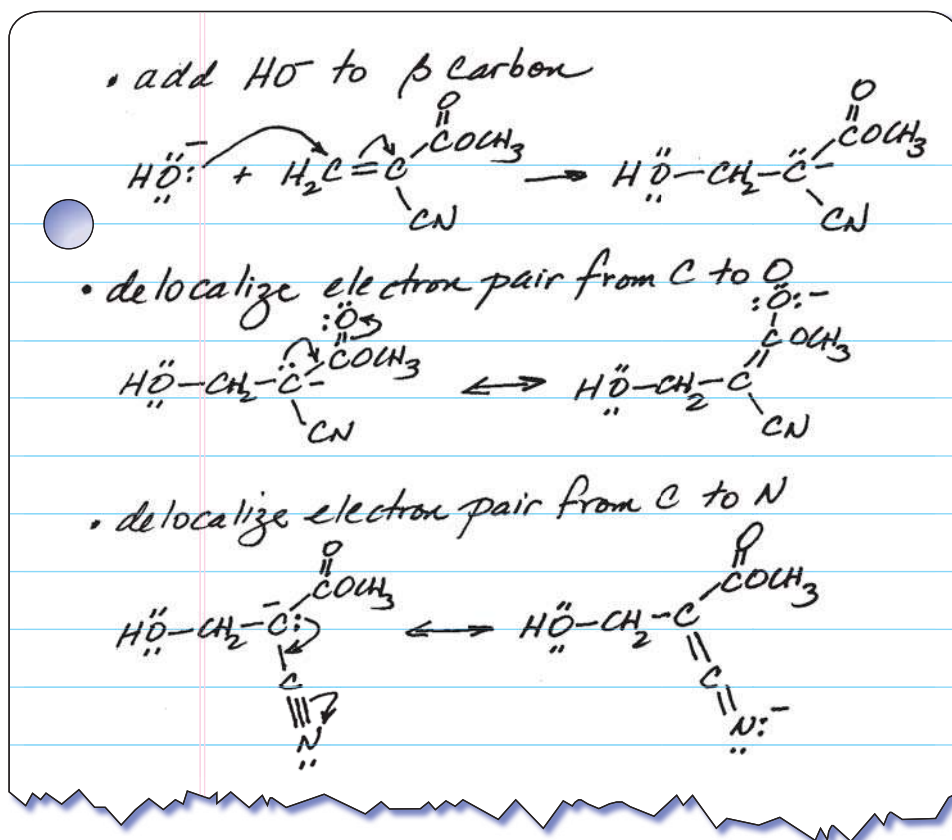 • add HO⁻ to β carbon
O
COCH₃
HO:⁻ + H₂C=C → HO–CH₂–C⁻
CN
O
COCH₃
CN
• delocalize electron pair from C to O
:O
COCH₃
HO–CH₂–C⁻ ↔ HO–CH₂–C
CN
:O:⁻
C OCH₃
CN
• delocalize electron pair from C to N
O
COCH₃
HO–CH₂–C:⁻ ↔ HO–CH₂–C
C
N
O
COCH₃
C
N:⁻